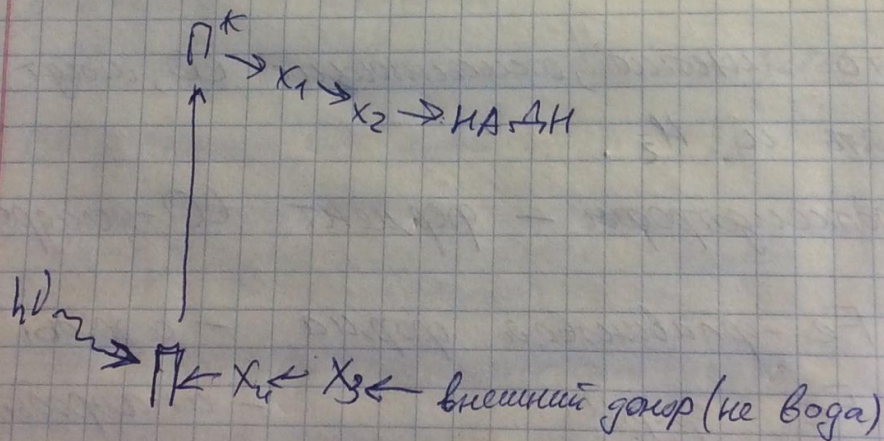 П*
→ X1 → X2 → НАДН
hν
П ← X4 ← X3 ← внешний донор (не вода)